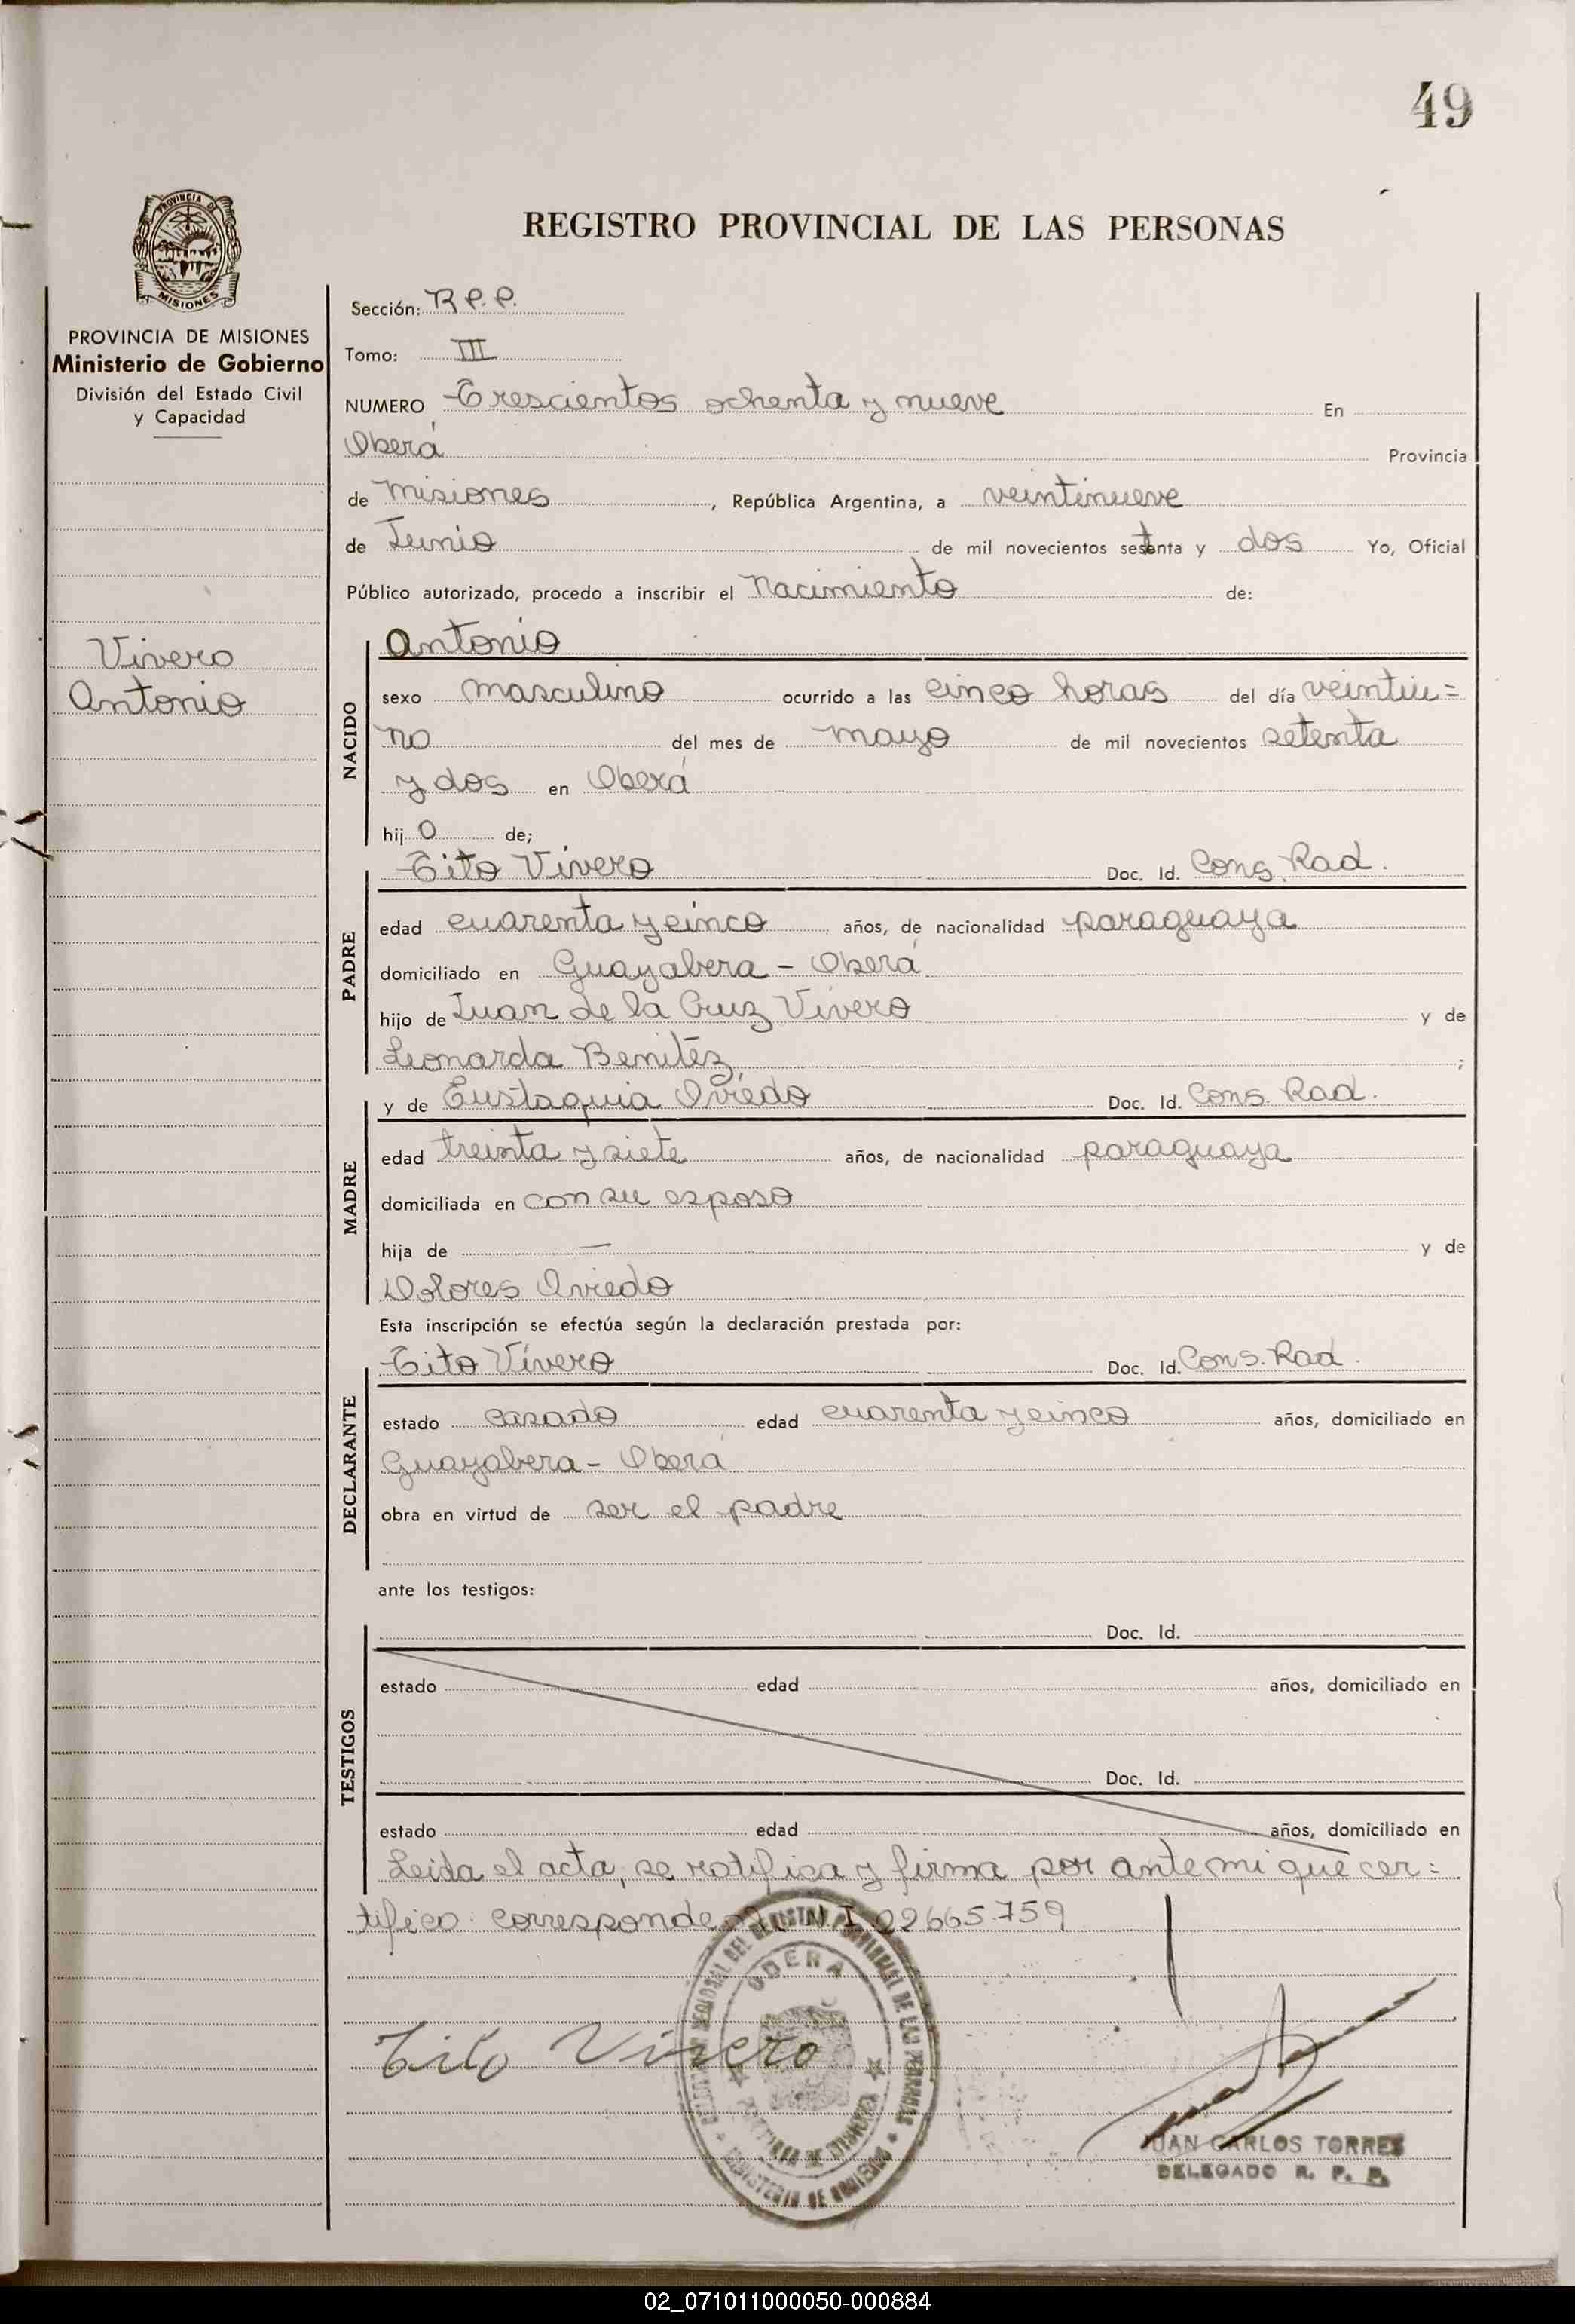 49
PROVINCIA DE
MISIONES
REGISTRO PROVINCIAL DE LAS PERSONAS
PROVINCIA DE MISIONES
Ministerio de Gobierno
División del Estado Civil
y Capacidad
Vivero
Antonio
Sección: R.P.P.
Tomo: III
NUMERO Trescientos ochenta y nueve En
Oberá Provincia
de Misiones, República Argentina, a veintinueve
de Junio de mil novecientos setenta y dos Yo, Oficial
Público autorizado, procedo a inscribir el Nacimiento de:
NACIDO
Antonio
sexo masculino ocurrido a las cinco horas del día veintiu=
no del mes de mayo de mil novecientos setenta
y dos en Oberá
hijo de;
PADRE
Tito Vivero Doc. Id. Cons. Rad.
edad cuarenta y cinco años, de nacionalidad paraguaya
domiciliado en Guayabera - Oberá
hijo de Juan de la Cruz Vivero y de
Leonarda Benitéz ;
MADRE
y de Eustaquia Oviedo Doc. Id. Cons. Rad.
edad treinta y siete años, de nacionalidad paraguaya
domiciliada en con su esposo
hija de — y de
Dolores Oviedo
Esta inscripción se efectúa según la declaración prestada por:
DECLARANTE
Tito Vivero Doc. Id. Cons. Rad.
estado casado edad cuarenta y cinco años, domiciliado en
Guayabera - Oberá
obra en virtud de ser el padre
ante los testigos:
TESTIGOS
Doc. Id.
estado edad años, domiciliado en
Doc. Id.
estado edad años, domiciliado en
Leida el acta, se ratifica y firma por ante mi que cer=
tifico: corresponde I 22665.759
OBERA
PROVINCIA DE MISIONES
MINISTERIO DE GOBIERNO
Tito Vivero
JUAN CARLOS TORRES
DELEGADO R. P. P.
02_071011000050-000884